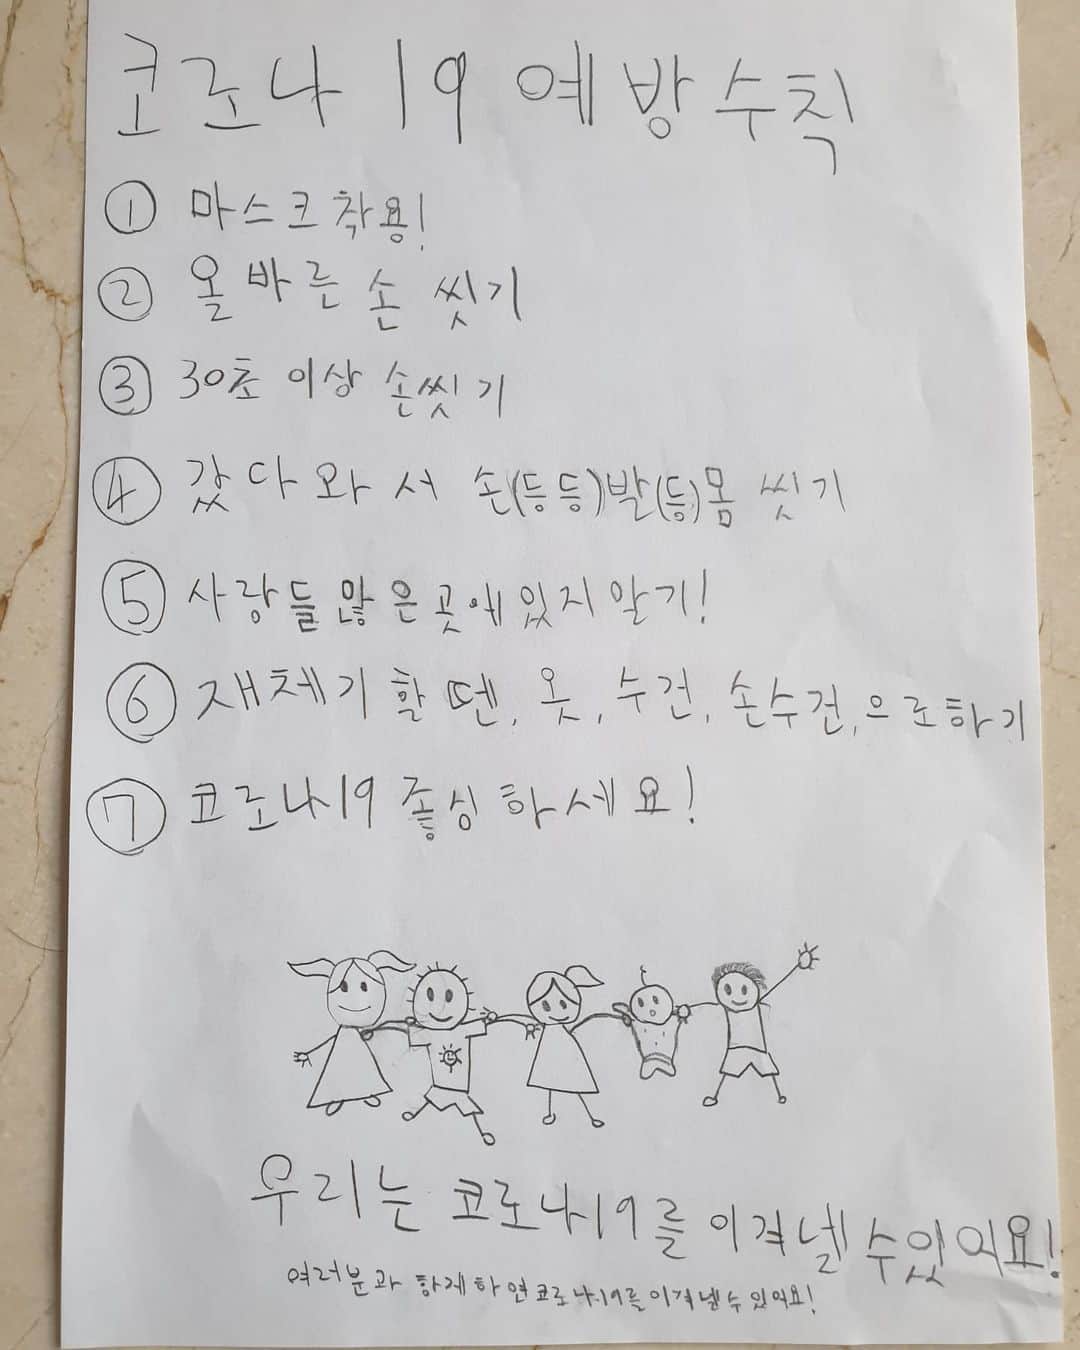 코로나 19 예방수칙
① 마스크착용!
② 올바른손 씻기
③ 30초 이상 손씻기
④ 갔다와서 손(등등)발(등)몸 씻기
⑤ 사랑들많은곳에있지말기!
⑥ 재체기할땐, 옷, 수건, 손수건,으로하기
⑦ 코로나19 좋심하세요!
우리는 코로나19를 이겨낼 수있어요!
여러분과 함께하면코로나19를이겨낼수있어요!